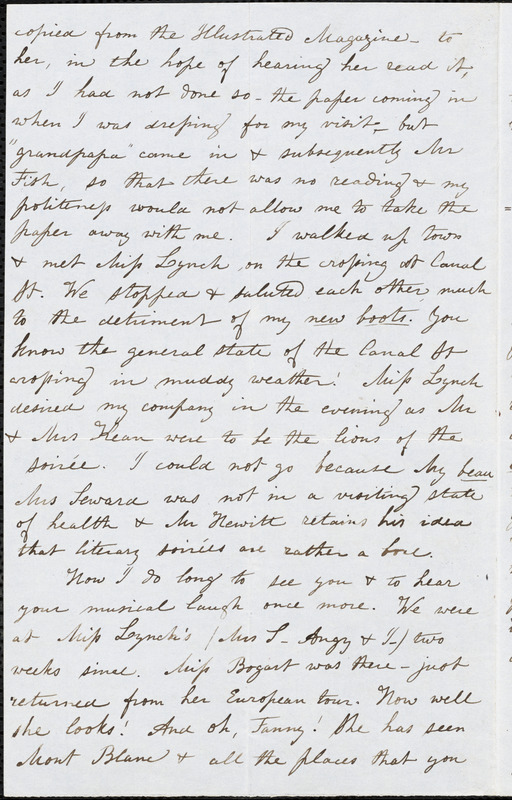 copied from the Illustrated Magazine - to
her, in the hope of hearing her read it,
as I had not done so - the paper coming in
when I was dressing for my visit - but
"grandpapa" came in & subsequently Mr
Fish, so that there was no reading & my
politeness would not allow me to take the
paper away with me. I walked up town
& met Miss Lynch on the crossing at Canal
St. We stopped & saluted each other much
to the detriment of my new boots. You
know the general state of the Canal St
crossing in muddy weather! Miss Lynch
desired my company in the evening as Mr
& Mrs Kean were to be the lions of the
soirée. I could not go because my beau
Mrs Seward was not in a visiting state
of health & Mr Hewitt retains his idea
that literary soirées are rather a bore.
Now I do long to see you & to hear
your musical laugh once more. We were
at Miss Lynch's (Mrs S- Angy & I-) two
weeks since. Miss Bogart was there - just
returned from her European tour. How well
she looks! And oh, Fanny! She has seen
Mont Blanc & all the places that you